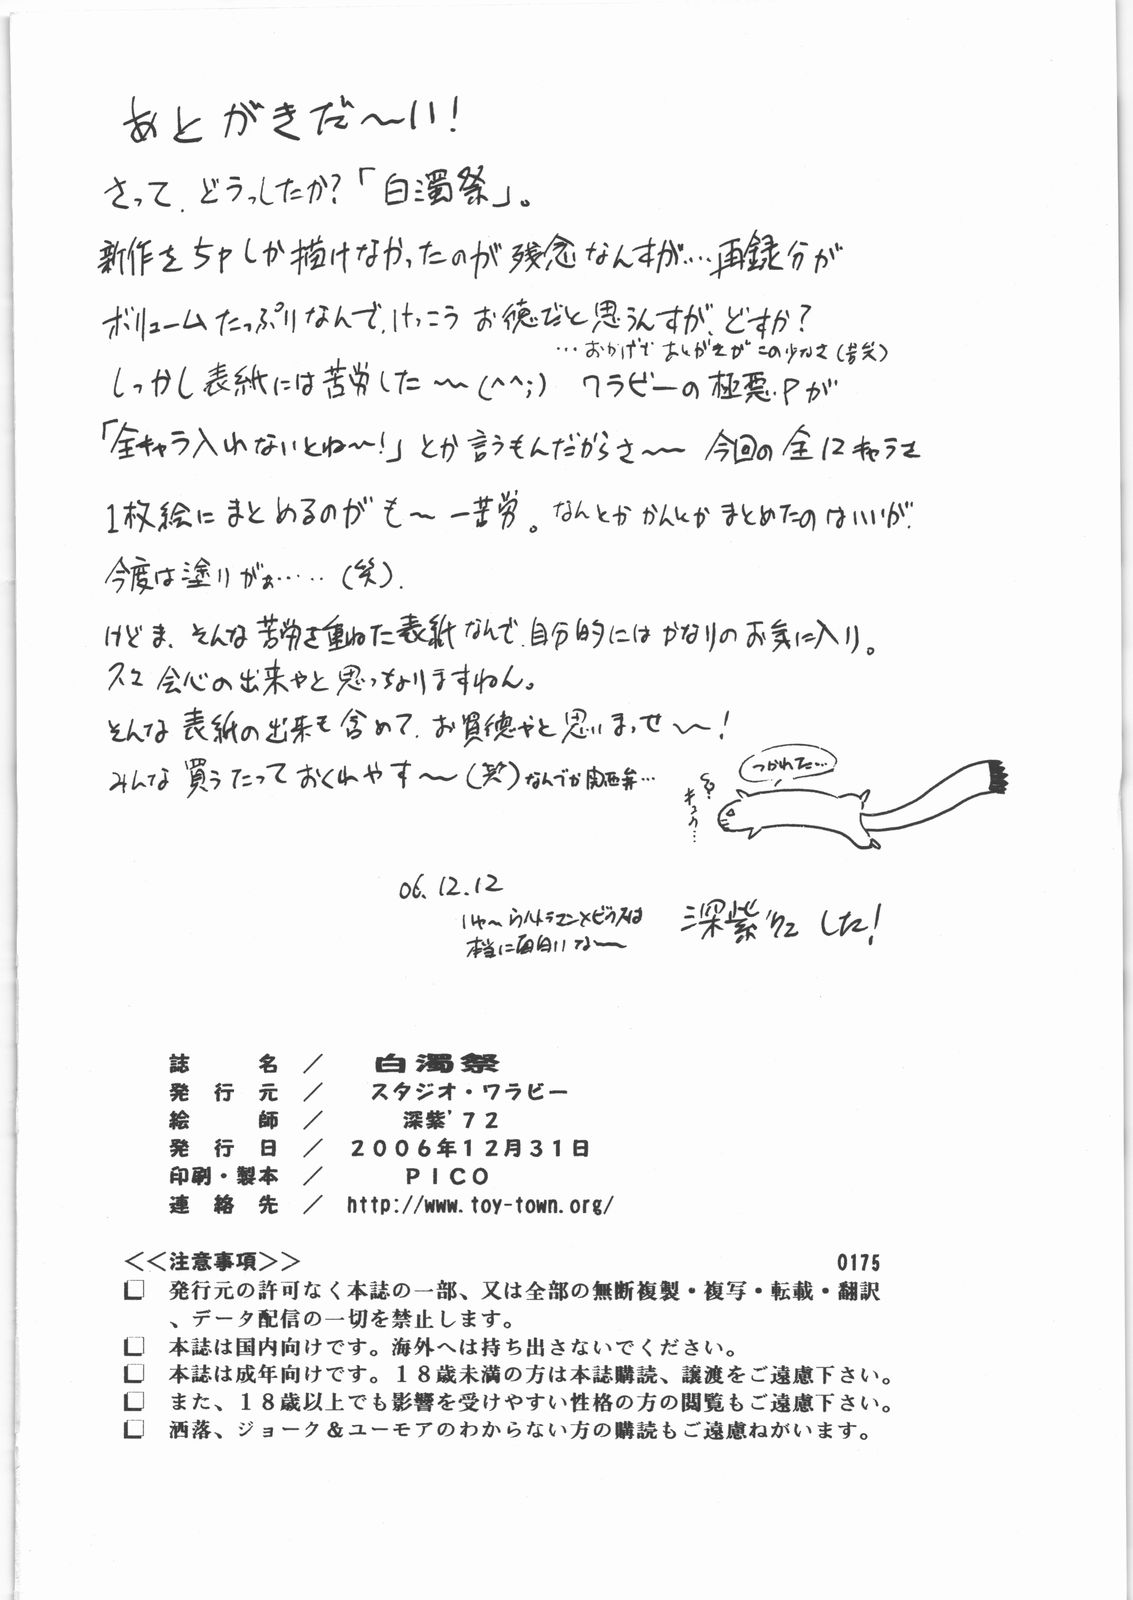 あとがきだ〜い!
さって、どうっしたか?「白濁祭」。
新作を5Pしか描けなかったのが残念なんすが…再録分が
ボリュームたっぷりなんで、けっこうお徳だと思うんすが、どすか?
…おかげであとがきがこの少なさ(苦笑)
しっかし表紙には苦労した〜(^^;) ワラビーの極悪Pが
「全キャラ入れないとね〜!」とか言うもんだからさ〜 今回の全12キャラを
1枚絵にまとめるのがも〜一苦労。なんとかかんとかまとめたのはいいが、
今度は塗りがぁ……(笑)。
けどま、そんな苦労を重ねた表紙なんで、自分的にはかなりのお気に入り。
会心の出来やと思っちょりますねん。
そんな表紙の出来も含めて、お買徳やと思いまっせ〜!
みんな買うたっておくれやす〜(笑)なんでか関西弁…
つかれた…
キュウ…
06.12.12
いや〜ウルトラマンメビウスは
本当に面白いな〜
深紫'72でした!
誌名/白濁祭
発行元/スタジオ・ワラビー
絵師/深紫'72
発行日/2006年12月31日
印刷・製本/PICO
連絡先/http://www.toy-town.org/
<<注意事項>> 0175
□ 発行元の許可なく本誌の一部、又は全部の無断複製・複写・転載・翻訳
、データ配信の一切を禁止します。
□ 本誌は国内向けです。海外へは持ち出さないでください。
□ 本誌は成年向けです。18歳未満の方は本誌購読、譲渡をご遠慮下さい。
□ また、18歳以上でも影響を受けやすい性格の方の閲覧もご遠慮下さい。
□ 洒落、ジョーク&ユーモアのわからない方の購読もご遠慮ねがいます。